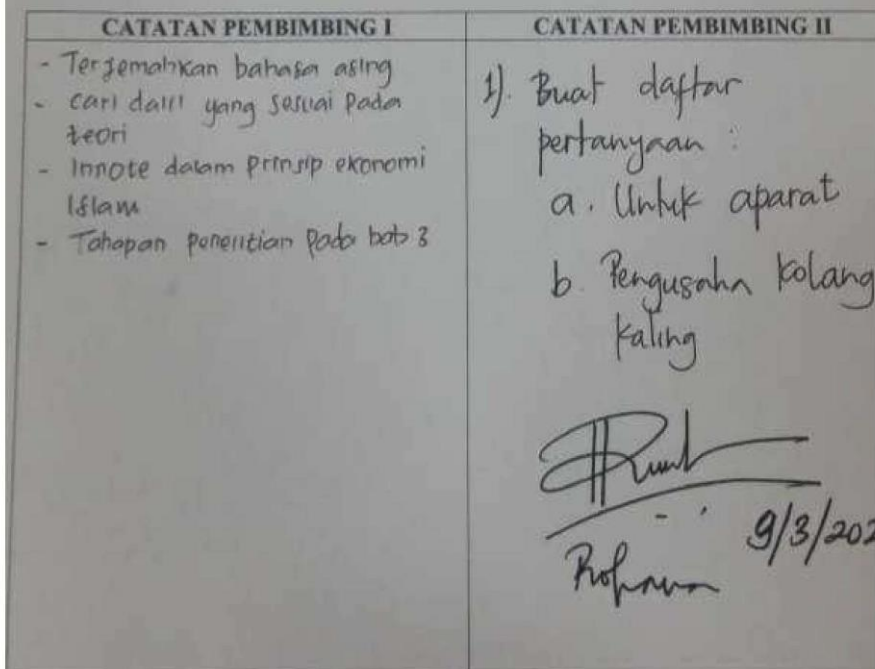 CATATAN PEMBIMBING I
- Terjemahkan bahasa asing
- cari dalil yang sesuai pada
teori
- Innote dalam prinsip ekonomi
Islam
- Tahapan penelitian pada bab 3
CATATAN PEMBIMBING II
1). Buat daftar
pertanyaan :
a. Untuk aparat
b. Pengusaha kolang
kaling
9/3/202